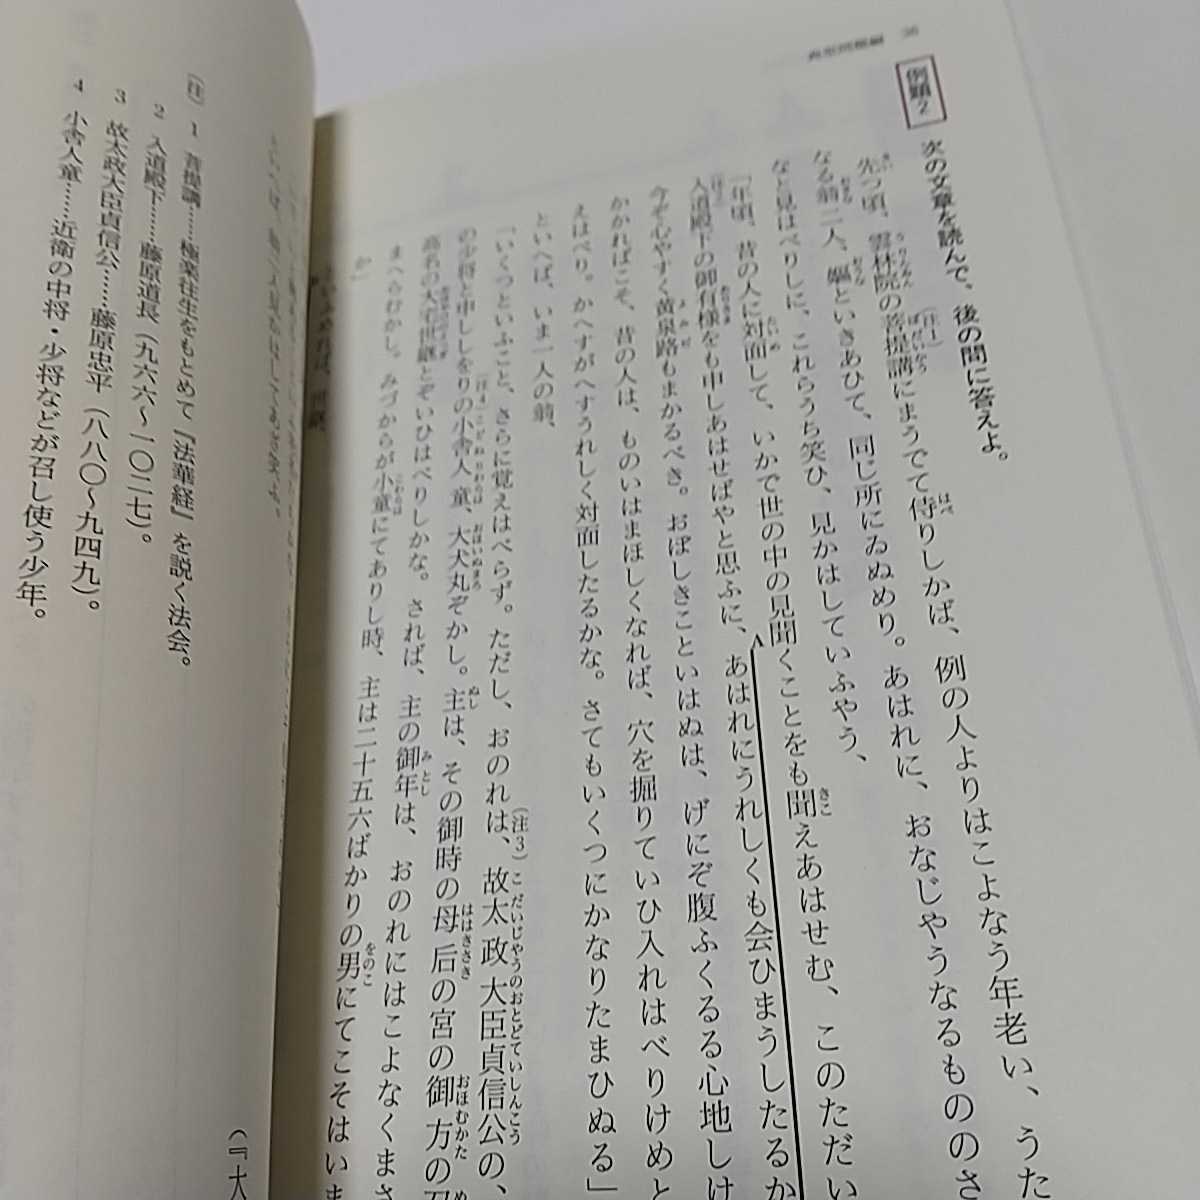 36
例題2 次の文章を読んで、後の問に答えよ。
先つ頃、雲林院の菩提講にまうでて侍りしかば、例の人よりはこよなう年老い、うた
なる翁二人、嫗といきあひて、同じ所にゐぬめり。あはれに、おなじやうなるもののさ
なと見はべりしに、これらうち笑ひ、見かはしていふやう、
「年頃、昔の人に対面して、いかで世の中の見聞くことをも聞えあはせむ、このただい
入道殿下の御有様をも申しあはせばやと思ふに、あはれにうれしくも会ひまうしたるか
今ぞ心やすく黄泉路もまかるべき。おぼしきこといはぬは、げにぞ腹ふくるる心地しけ
かかればこそ、昔の人は、ものいはまほしくなれば、穴を掘りていひ入れはべりけめと
えはべり。かへすがへすうれしく対面したるかな。さてもいくつにかなりたまひぬる」
といへば、いま一人の翁、
「いくつといふこと、さらに覚えはべらず。ただし、おのれは、故太政大臣貞信公の、
の少将と申ししをりの小舎人童、大犬丸ぞかし。主は、その御時の母后の宮の御方の召
高名の大宅世継とぞいひはべりしかな。されば、主の御年は、おのれにはこよなくまさ
まへらむかし。みづからが小童にてありし時、主は二十五六ばかりの男にてこそはいま
か」
(注) 1 菩提講……極楽往生をもとめて『法華経』を説く法会。
2 入道殿下……藤原道長（九六六〜一〇二七）。
3 故太政大臣貞信公……藤原忠平（八八〇〜九四九）。
4 小舎人童……近衛の中将・少将などが召し使う少年。
（『大